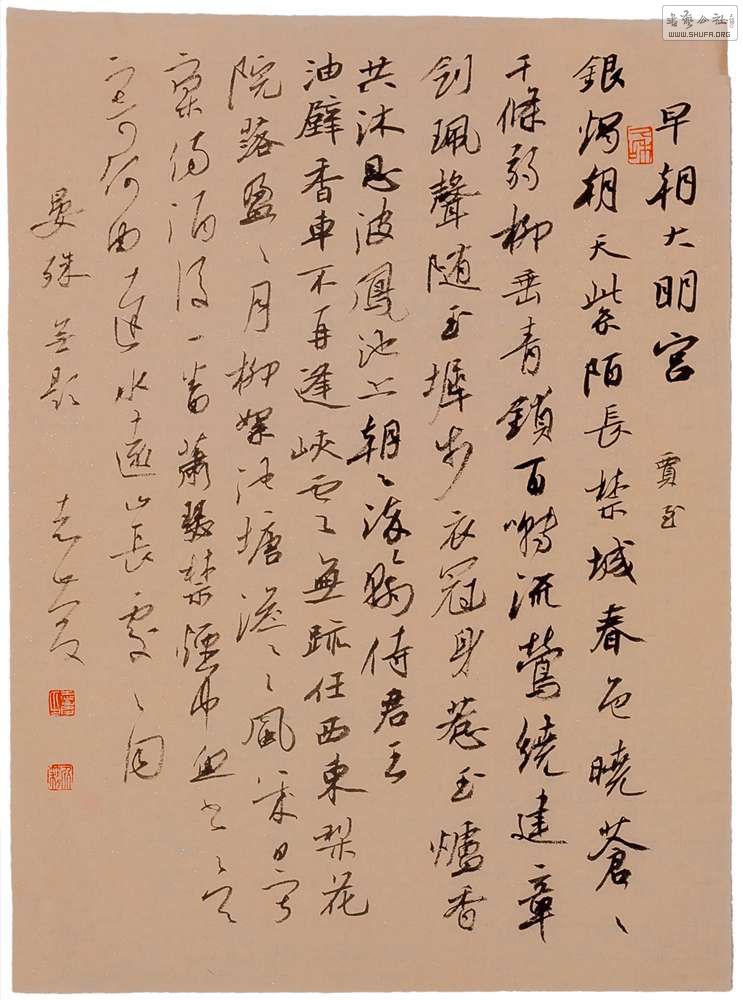 書藝公社
WWW.SHUFA.ORG
早朝大明宮 賈至
銀燭朝天紫陌長禁城春色曉蒼〻
千條弱柳垂青鎖百囀流鶯繞建章
劍珮聲隨玉墀步衣冠身惹玉爐香
共沐恩波鳳池上朝〻染翰侍君王
油壁香車不再逢峽雲無跡任西東梨花
院落盈〻月柳絮池塘淡〻風幾日寂
寥傷酒後一番蕭瑟禁煙中魚書欲
寄何由達水遠山長處〻同
晏殊 無題